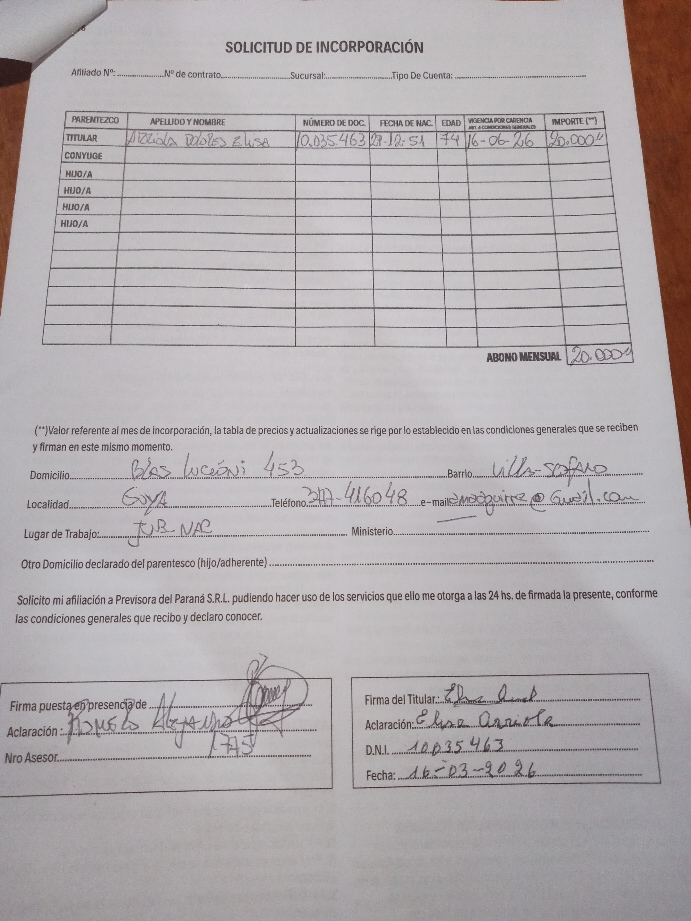 SOLICITUD DE INCORPORACIÓN
Afiliado Nº: Nº de contrato Sucursal: Tipo De Cuenta:
PARENTEZCO APELLIDO Y NOMBRE NÚMERO DE DOC. FECHA DE NAC. EDAD VIGENCIA POR CARENCIA ART. 4 CONDICIONES GENERALES IMPORTE (**)
TITULAR Arriola Dolores Elisa 10.035.463 27-12-51 74 16-06-26 20.000
CONYUGE
HIJO/A
HIJO/A
HIJO/A
HIJO/A
ABONO MENSUAL 20.000
(**)Valor referente al mes de incorporación, la tabla de precios y actualizaciones se rige por lo establecido en las condiciones generales que se reciben
y firman en este mismo momento.
Domicilio Blas 453 Barrio Villa
Localidad Goya Teléfono 416048 e-mail @Gmail.com
Lugar de Trabajo: JUB NAC Ministerio
Otro Domicilio declarado del parentesco (hijo/adherente)
Solicito mi afiliación a Previsora del Paraná S.R.L. pudiendo hacer uso de los servicios que ello me otorga a las 24 hs. de firmada la presente, conforme
las condiciones generales que recibo y declaro conocer.
Firma puesta en presencia de
Aclaración :
Nro Asesor 1775
Firma del Titular: Elisa
Aclaración: Elisa Arriola
D.N.I. 10035463
Fecha: 16-03-2026